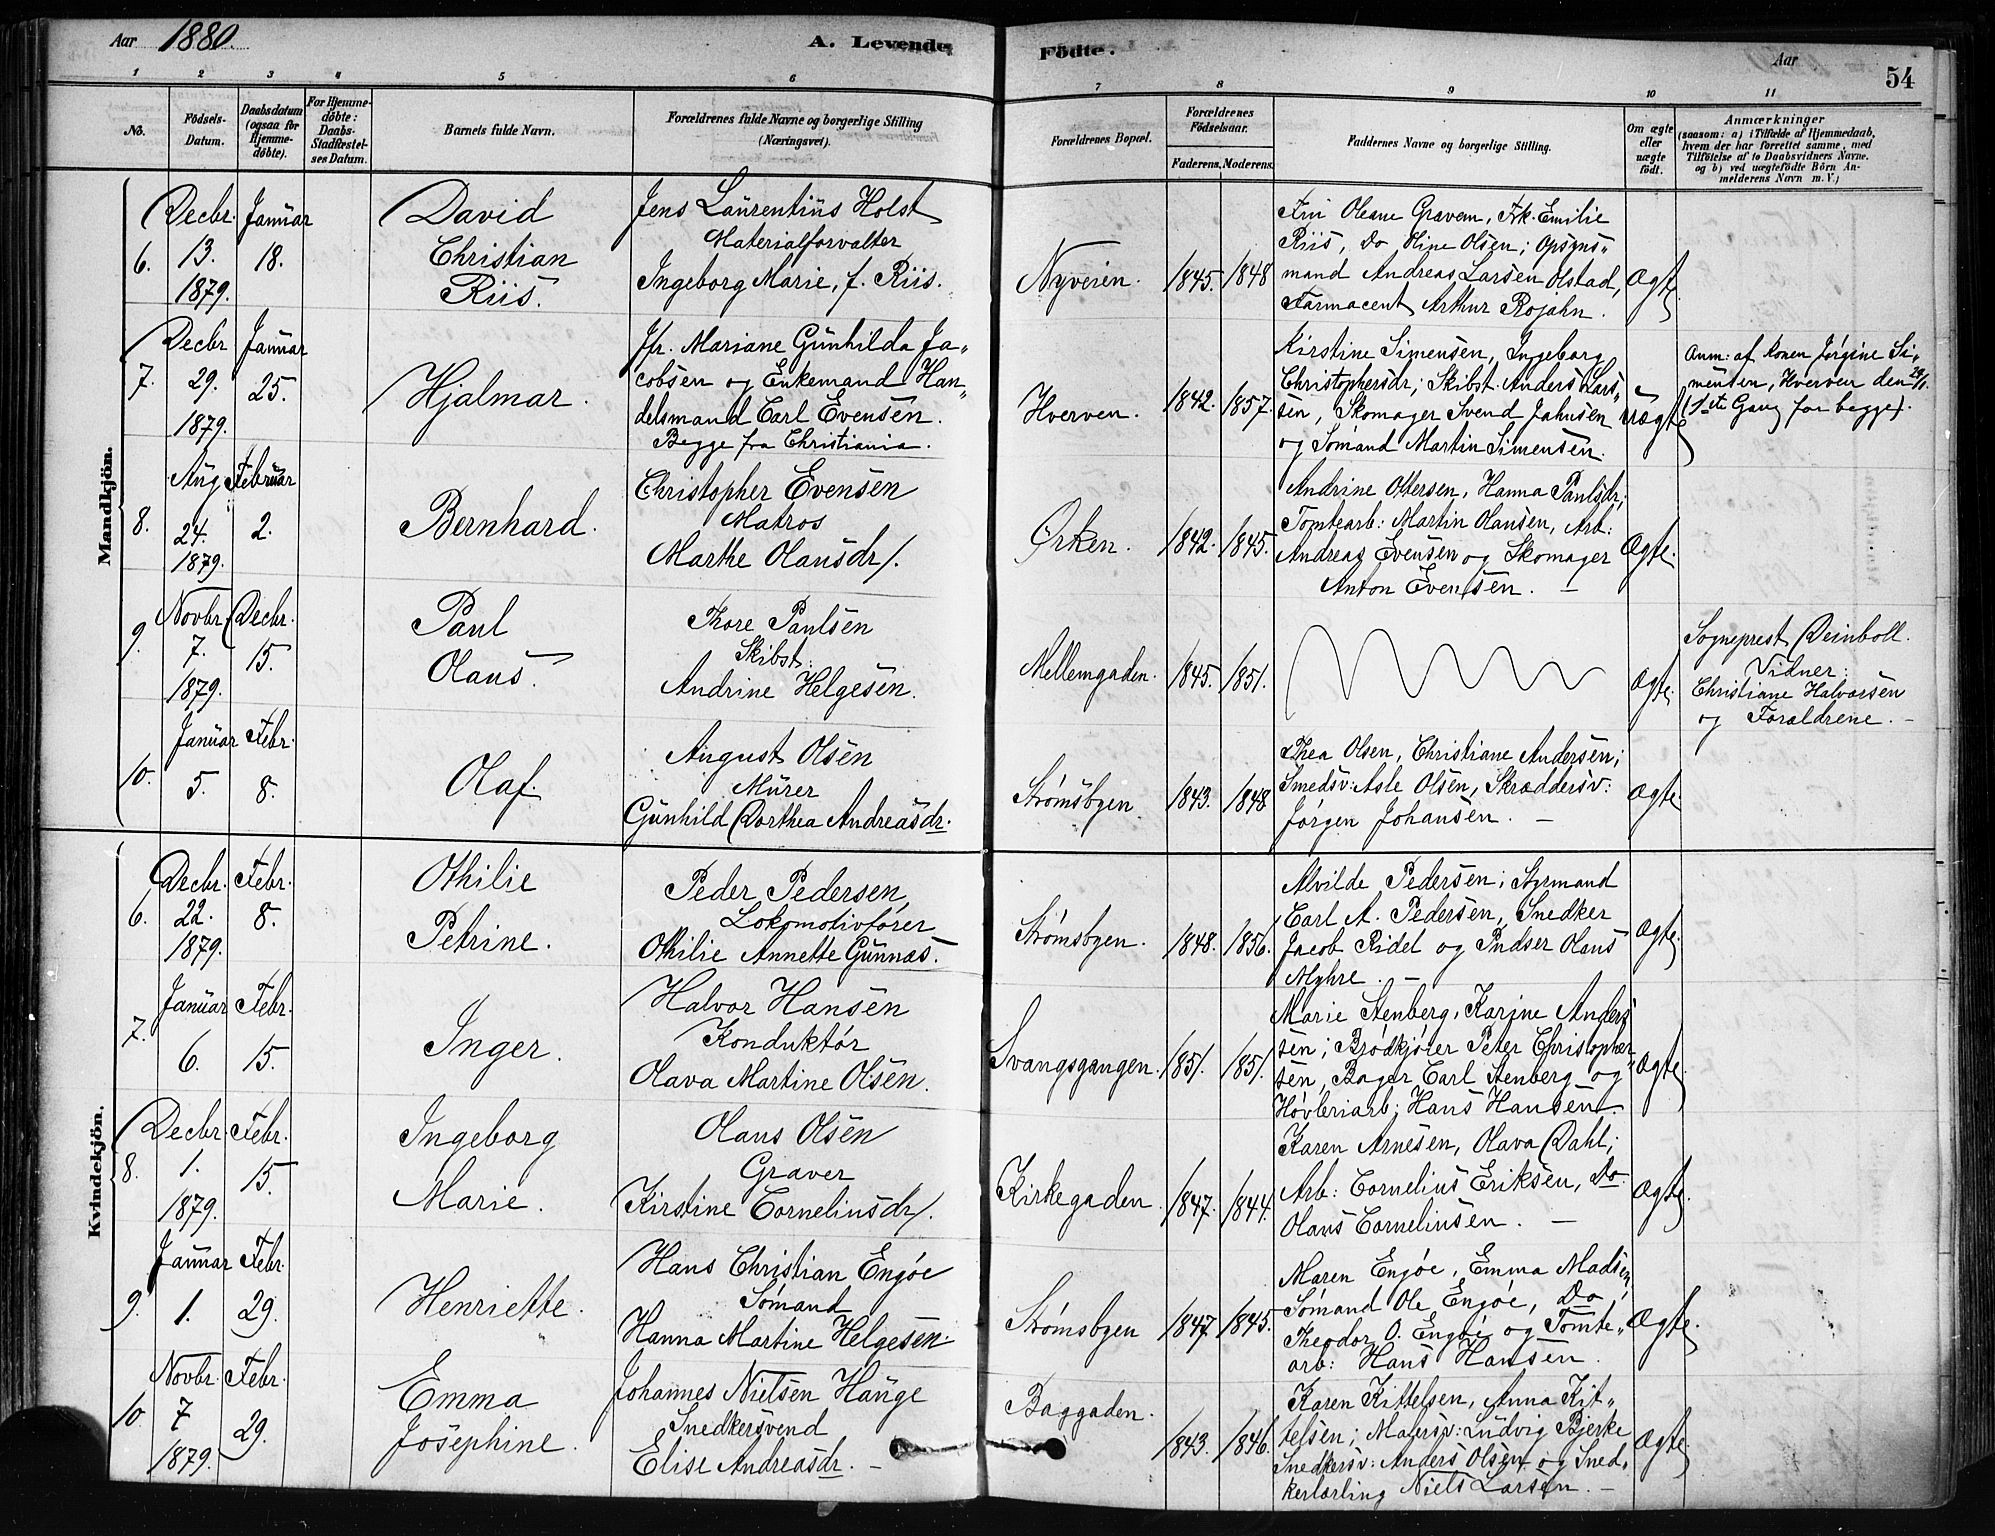 Aar 1880.
A. Levende Födte.
Aar
54
1 2 3 4 5 6 7 8 9 10 11
No.
Födsels-
Datum.
Daabsdatum
(ogsaa for
Hjemme-
döbte).
For Hjemme-
döbte:
Daabs-
Stadfæstel-
ses Datum.
Barnets fulde Navn.
Forældrenes fulde Navne og borgerlige Stilling
(Næringsvei).
Forældrenes Bopæl.
Forældrenes
Födselsaar.
Faderens. Moderens.
Faddernes Navne og borgerlige Stilling.
Om ægte
eller
uægte
födt.
Anmærkninger
(saasom: a) i Tilfælde af Hjemmedaab,
hvem der har forrettet samme, med
Tilföielse af to Daabsvidners Navne.
og b) ved uægtefödte Börn An-
melderens Navn m. V.)
Mandkjön.
6.
Decbr.
13.
1879.
Januar
18.
David
Christian
Riis.
Jens Laurentius Holst
Materialforvalter
Ingeborg Marie, f. Riis.
Nyveien.
1845. 1848
Fru Oleane Graven, Frk. Emilie
Riis, Do Stine Olsen; Opsyns-
mand Andreas Larsen Olstad,
Farmacent Arthur Rojahn.
Ægte
7.
Decbr
29.
1879.
Januar
25.
Hjalmar.
Jfr. Mariane Gunhilda Ja-
cobsen og Enkemand Han-
delsmand Carl Evensen.
Begge fra Christiania.
Hverven.
1842. 1857.
Kirstine Simensen, Ingeborg
Christophersdr; Skibst. Anders Lars-
sen, Skomager Svend Jahnsen
og Sømand Martin Simensen.
uægte
Anm: af Konen Jørgine Si-
mensen, Hverven den 24/1.
(1ste Gang for begge).
8.
Aug
24.
1879.
Februar
2.
Bernhard.
Christopher Evensen
Matros
Marthe Olausdr.
Ørken.
1842. 1845.
Andrine Ottersen, Hanna Paulsdr;
Tomtearb: Martin Olausen, Arb:
Andreas Evensen og Skomager
Anton Evensen. —
Ægte.
9.
Novbr.
7.
1879.
Decbr.
15.
Paul
Olaus.
Thore Paulsen
Skibst.
Andrine Helgesen.
Mellemgaden.
1845. 1851.
Ægte.
Sogneprest Deinboll.
Vidner:
Christiane Halvorsen
og Forældrene. —
10.
Januar
5.
Febr.
8.
Olaf.
August Olsen
Murer
Gunhild Dorthea Andreasdr.
Strømsbyen
1843. 1848.
Thea Olsen, Christiane Andersen;
Smedsv: Asle Olsen, Skræddersv:
Jørgen Johansen. —
Ægte.
Kvindekjön.
6.
Decbr.
22.
1879.
Febr.
8.
Othilie
Petrine.
Peder Pedersen
Lokomotivfører
Othilie Annette Gunnæs.
Strømsbyen.
1848. 1856.
Alvilde Pedersen; Styrmand
Carl A. Pedersen, Snedker
Jacob Ridel og Pudser Olaus
Myhre. —
Ægte.
7.
Januar
6.
Febr.
15.
Inger.
Halvor Hansen
Konduktør
Olava Martine Olsen.
Svangsgangen.
1851. 1851.
Marie Stenberg, Karine Anders-
sen; Brødkjører Peter Christopher-
sen, Bager Carl Stenberg og
Høvleriarb: Hans Hansen.
Ægte.
8.
Decbr.
1.
1879.
Febr.
15.
Ingeborg
Marie.
Olaus Olsen
Graver
Kirstine Corneliusdr.
Kirkegaden.
1847. 1844.
Karen Arnesen, Olava Dahl;
Arb: Cornelius Eriksen, Do
Olaus Corneliusen. —
Ægte.
9.
Januar
1.
Febr.
29.
Henriette.
Hans Christian Engøe
Sømand
Hanna Martine Helgesen.
Strømsbyen
1847. 1845.
Maren Engøe, Emma Madsen,
Sømand Ole Engøe, Do
Theodor O. Engøe og Tomte-
arb: Hans Hansen.
Ægte.
10.
Novbr.
7
1879.
Febr.
29.
Emma
Josephine.
Johannes Nielsen Hauge
Snedkersvend
Elise Andreasdr. —
Baggaden.
1843. 1846.
Karen Kittelsen, Anna Kit-
telsen; Malersv: Ludvig Bjerke
Snedkersv: Anders Olsen og Sned-
kerlærling Niels Larsen. —
Ægte.